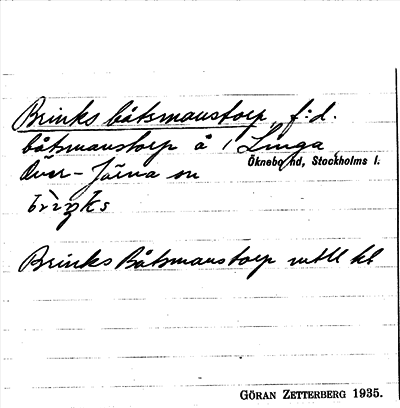 Brinks båtsmanstorp, f:d.
båtsmanstorp å 1 Linga,
Öknebo hd, Stockholms l.
Över-Järna sn
Brinks Båtsmanstorp mtll kt
GÖRAN ZETTERBERG 1935.